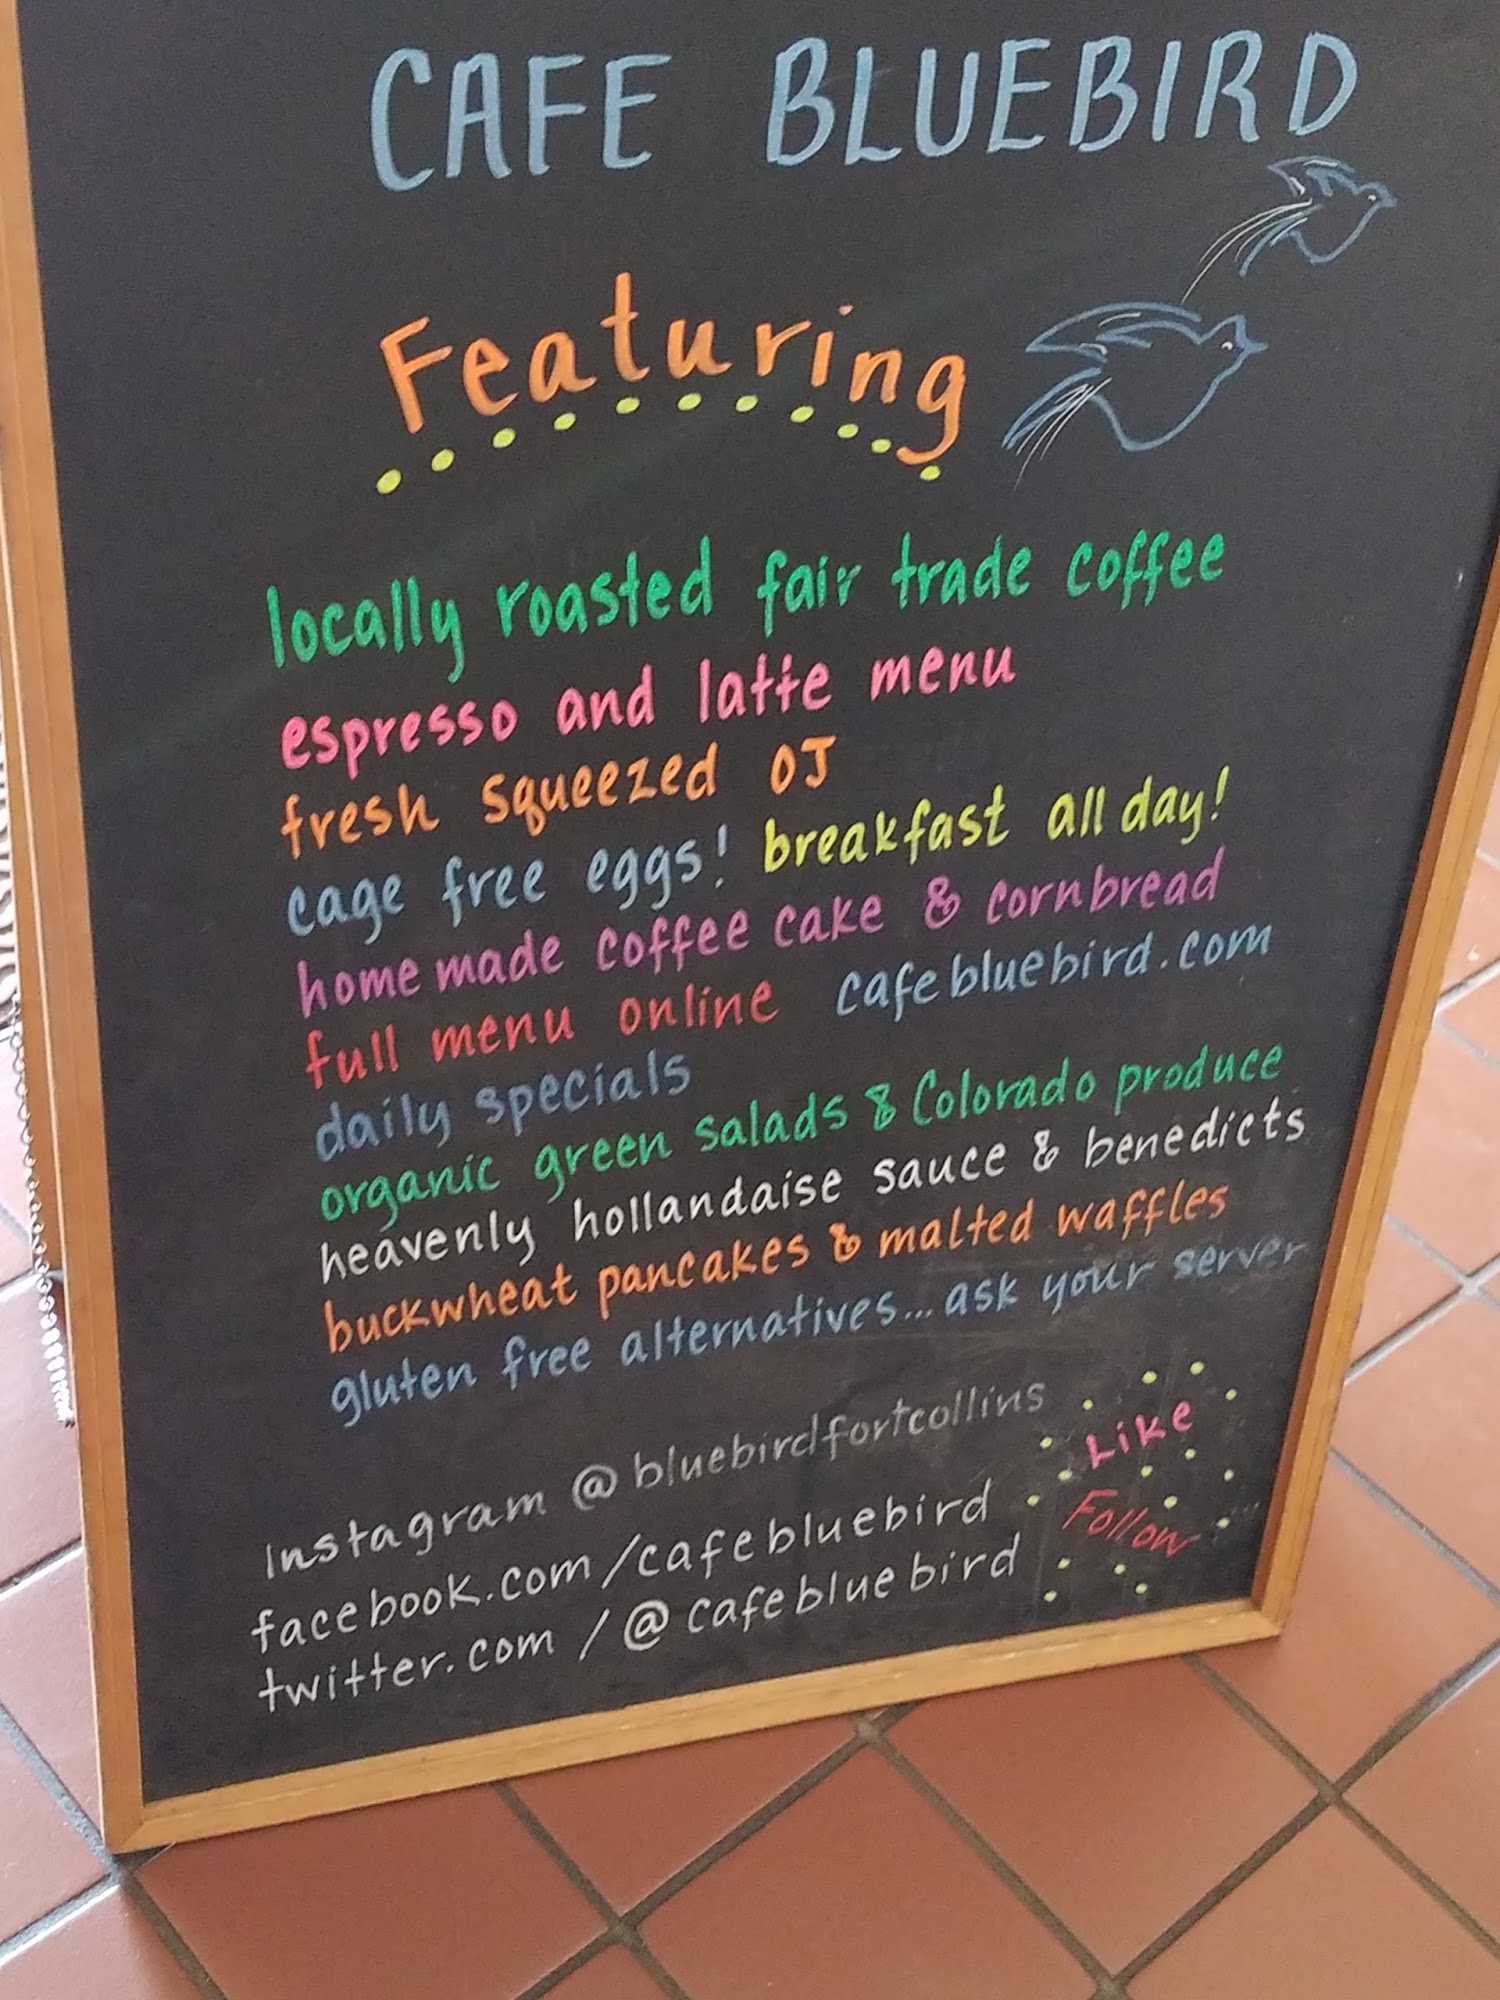 CAFE BLUEBIRD
Featuring
locally roasted fair trade coffee
espresso and latte menu
fresh squeezed OJ
cage free eggs! breakfast all day!
homemade coffee cake & cornbread
full menu online cafebluebird.com
daily specials
organic green salads & Colorado produce
heavenly hollandaise sauce & benedicts
buckwheat pancakes & malted waffles
gluten free alternatives... ask your server
Instagram @bluebirdfortcollins
facebook.com/cafebluebird
twitter.com/@cafebluebird
Like
Follow